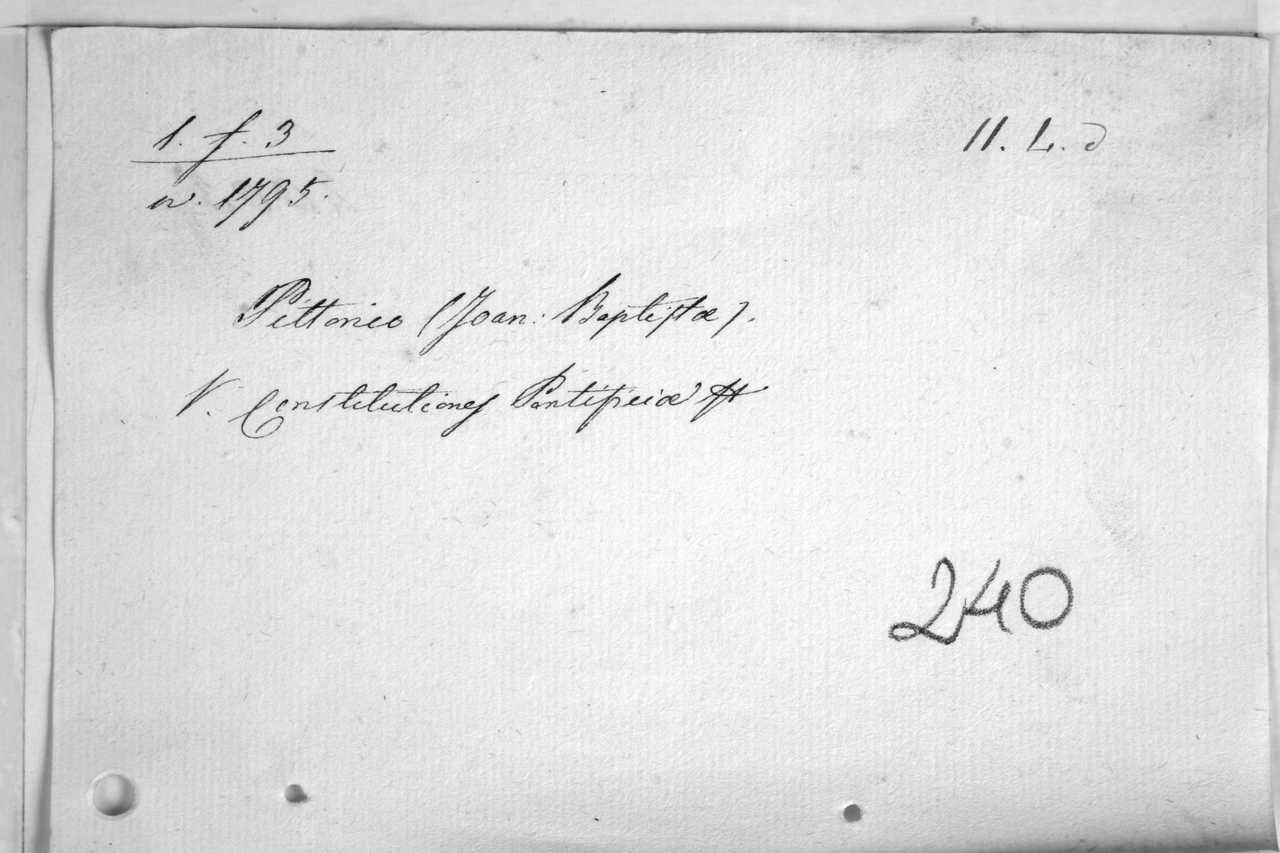 1. f. 3
n. 1795.
II. L. d
Pittonio (Joan: Baptistæ).
V. Constitutiones Pontificiæ
240